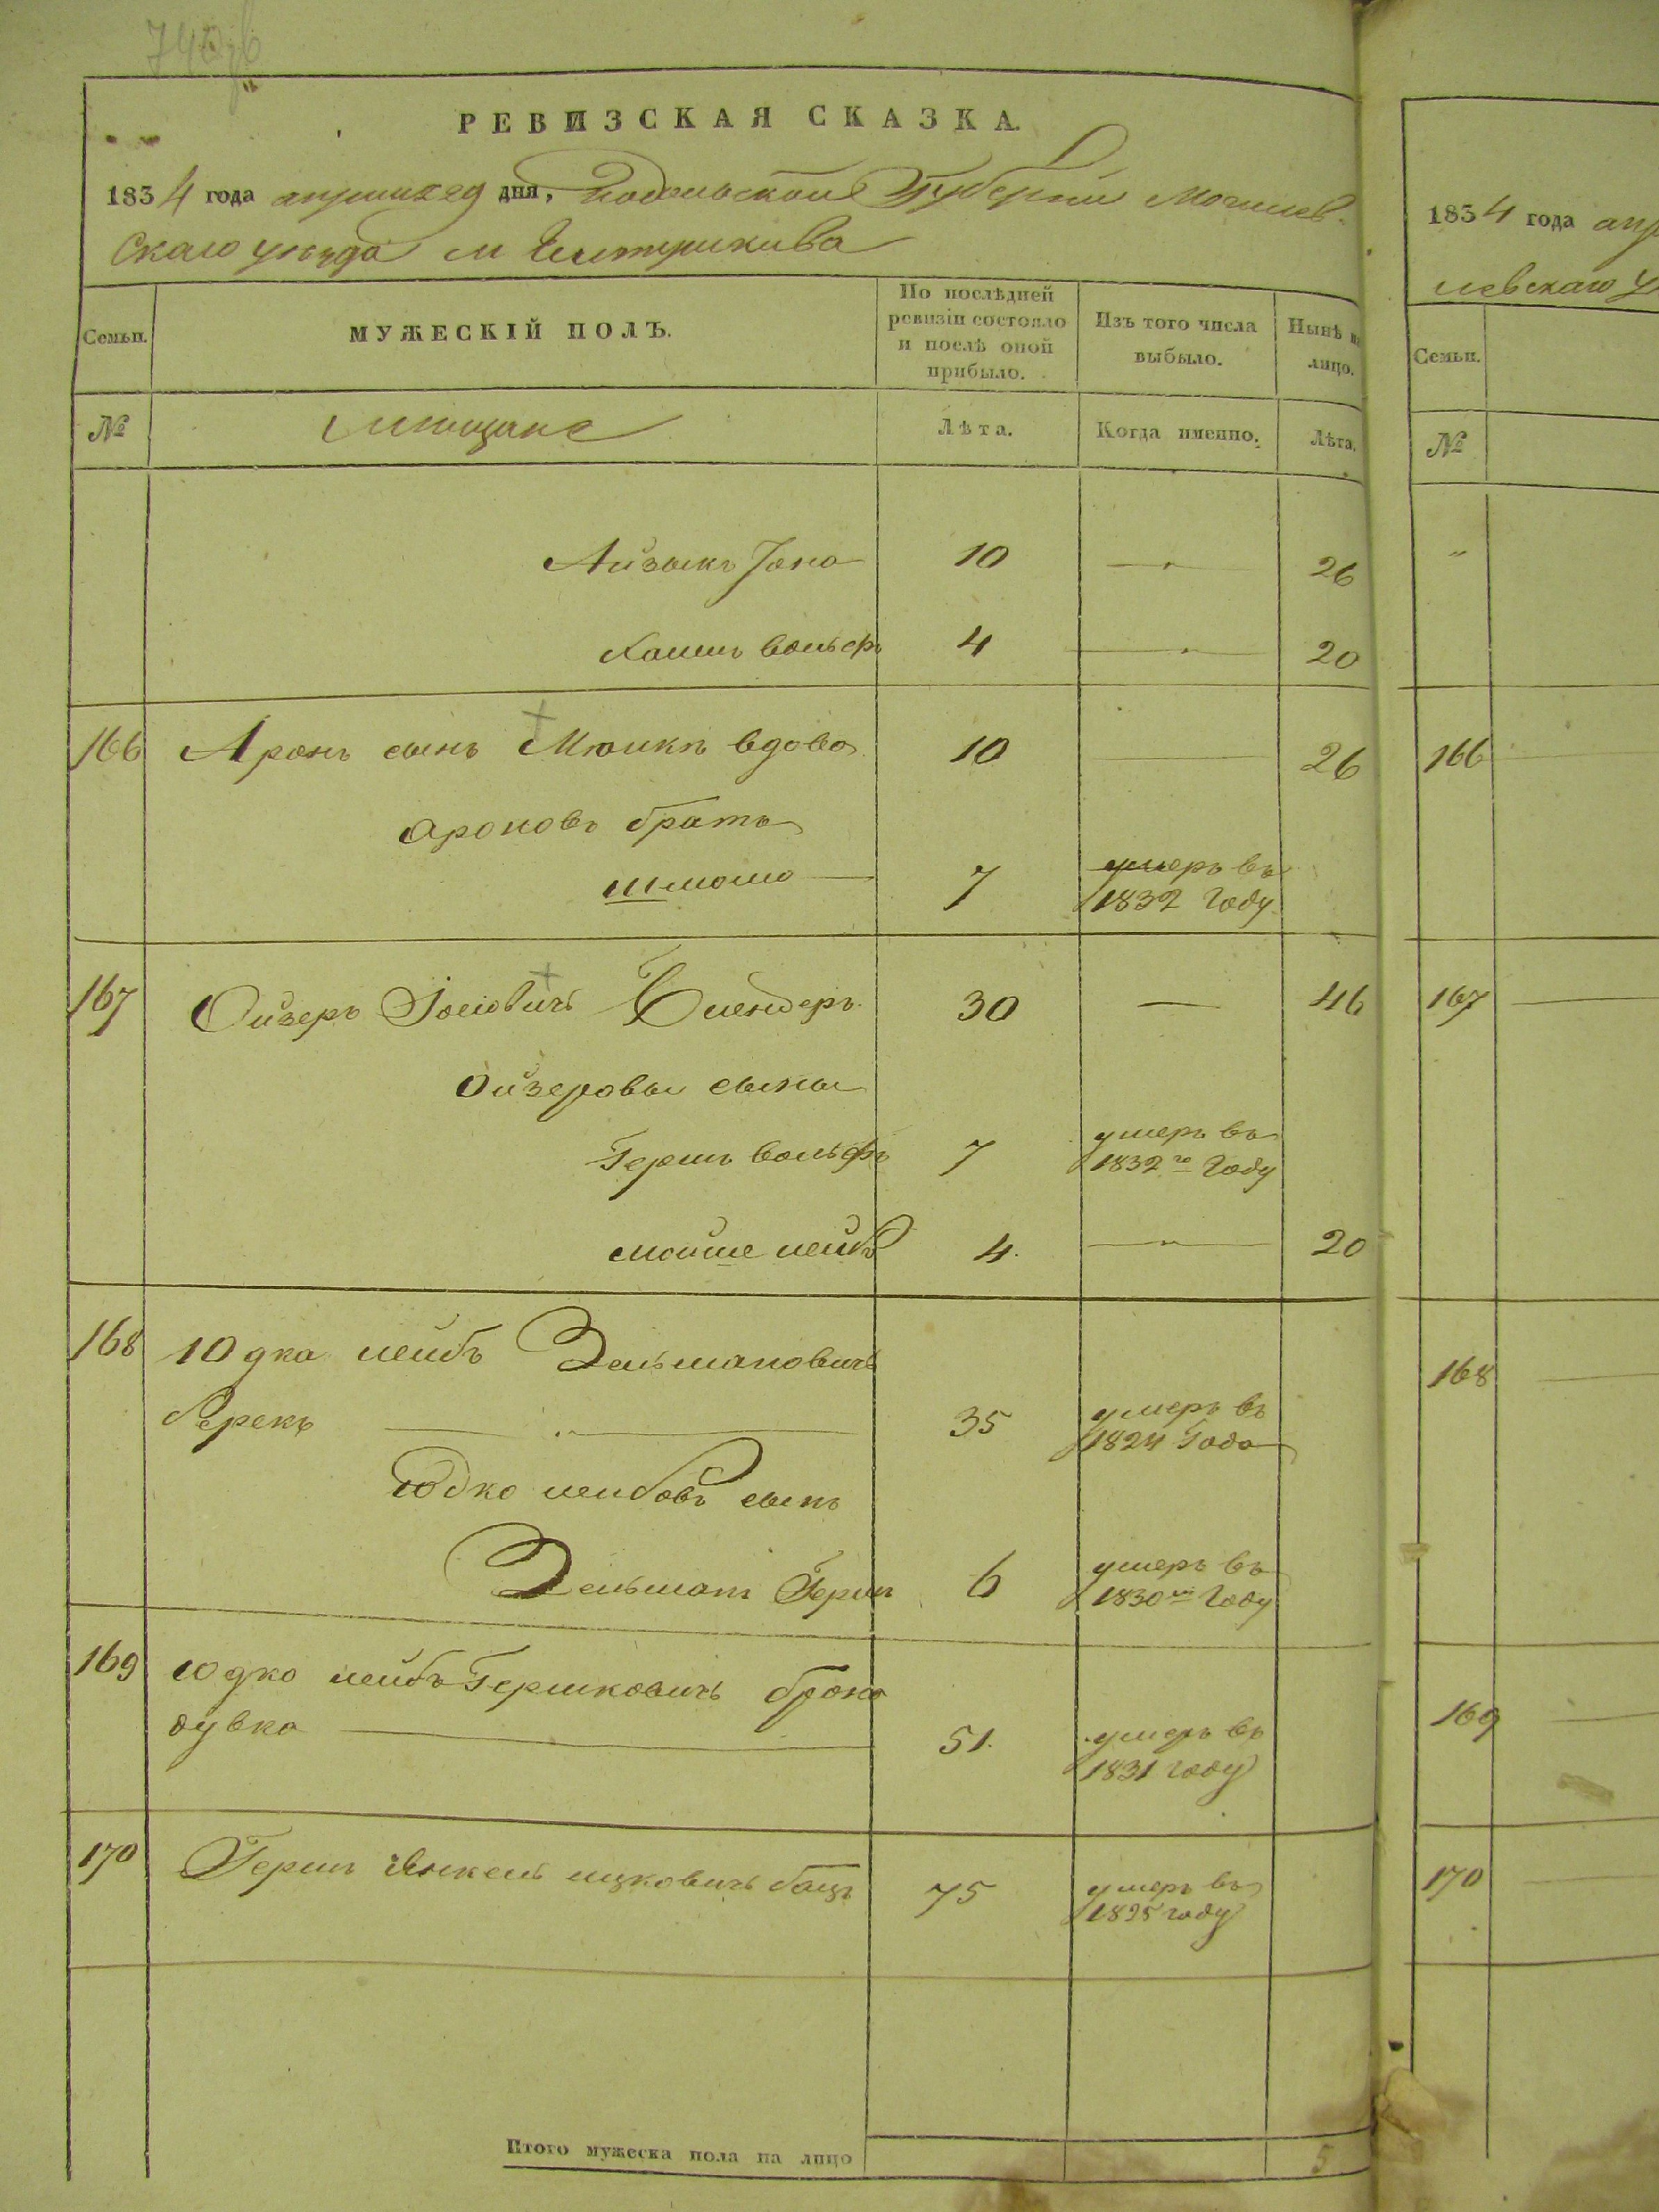 РЕВИЗСКАЯ СКАЗКА.
1834 года апреля дня, Подольской Губернии Могилев-
скаго уезда м
Семьи.
МУЖЕСКІЙ ПОЛЪ.
По послѣдней ревизіи состояло и послѣ оной прибыло.
Изъ того числа выбыло.
Нынѣ на лицо.
№
мещане
Лѣта.
Когда именно.
Лѣта.
Айзыкъ 10 26
Хаимъ вольфъ 4 20
166 Аронъ сынъ вдова 10 26
ароновъ братъ
шмоло 7 умеръ въ
1832 Году
167 Ойзеръ Блендеръ 30 46
Ойзеровы сыны
Гершъ вольфъ 7 умеръ въ
1832го Году
мойше лейбъ 4. 20
168 Юдка лейбъ Зельмановичъ
35 умеръ въ
1824 Года
Юдко лейбовъ сынъ
Зельманъ Гершъ 6 умеръ въ
1830м Году
169 Юдко лейбъ Гершковичъ
51. умеръ въ
1831 году
170 Гершъ Янкель ицковичъ бацъ 75 умеръ въ
1825 году
Итого мужеска пола на лицо 5
1834 года апр
левскаго у
Семьи.
№
166
167
168
169
170